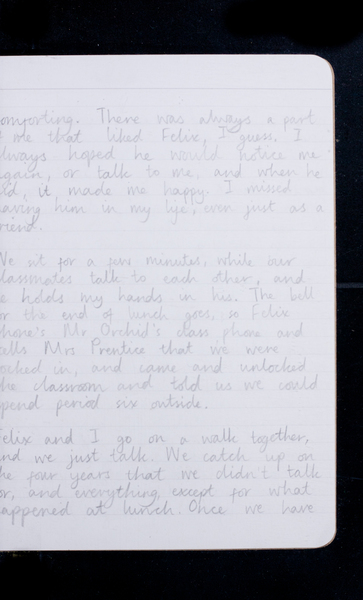 omforting. There was always a part
f me that liked Felix, I guess. I
lways hoped he would notice me
again, or talk to me, and when he
id, it made me happy. I missed
aving him in my life, even just as a
riend.
We sit for a few minutes, while our
lassmates talk to each other, and
e holds my hands in his. The bell
or the end of lunch goes, so Felix
phone's Mr Orchid's class phone and
ells Mrs Prentice that we were
ocked in, and came and unlocked
he classroom and told us we could
pend period six outside.
Felix and I go on a walk together,
and we just talk. We catch up on
he four years that we didn't talk
or, and everything, except for what
appened at lunch. Once we have